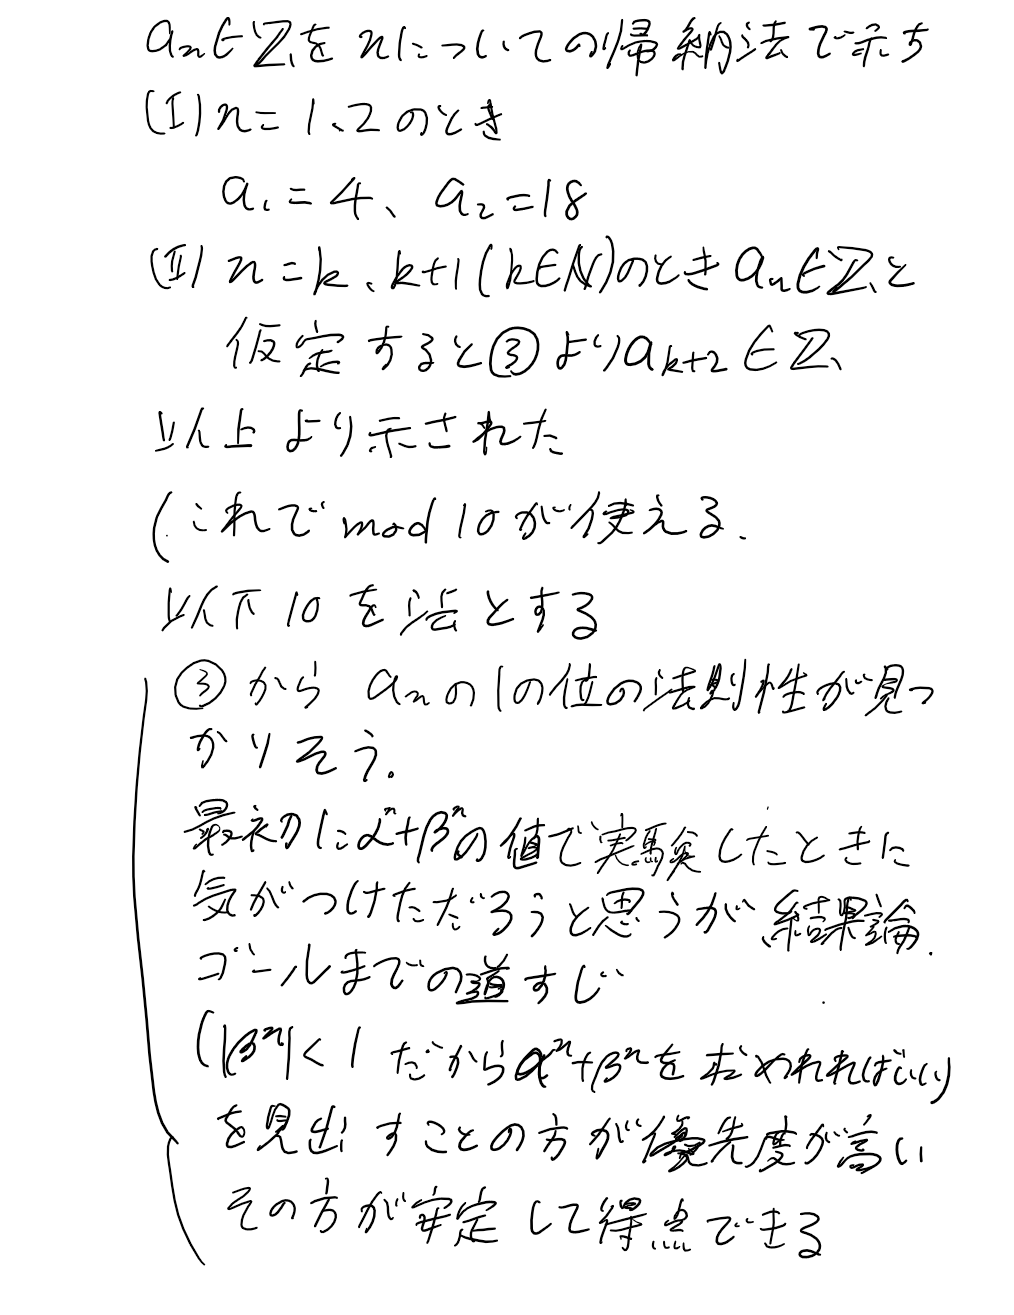 aₙ∈ℤをnについての帰納法で示す
(Ⅰ) n=1、2のとき
a₁=4、a₂=18
(Ⅱ) n=k、k+1(k∈ℕ)のときaₙ∈ℤと
仮定すると③よりaₖ₊₂∈ℤ、
以上より示された
(これでmod 10が使える.
以下10を法とする
③からaₙの1の位の法則性が見つ
かりそう.
最初にαⁿ+βⁿの値で実験したときに
気がつけただろうと思うが結果論.
ゴールまでの道すじ
(|βⁿ|<1だからαⁿ+βⁿを求めれればいい)
を見出すことの方が優先度が高い
その方が安定して得点できる